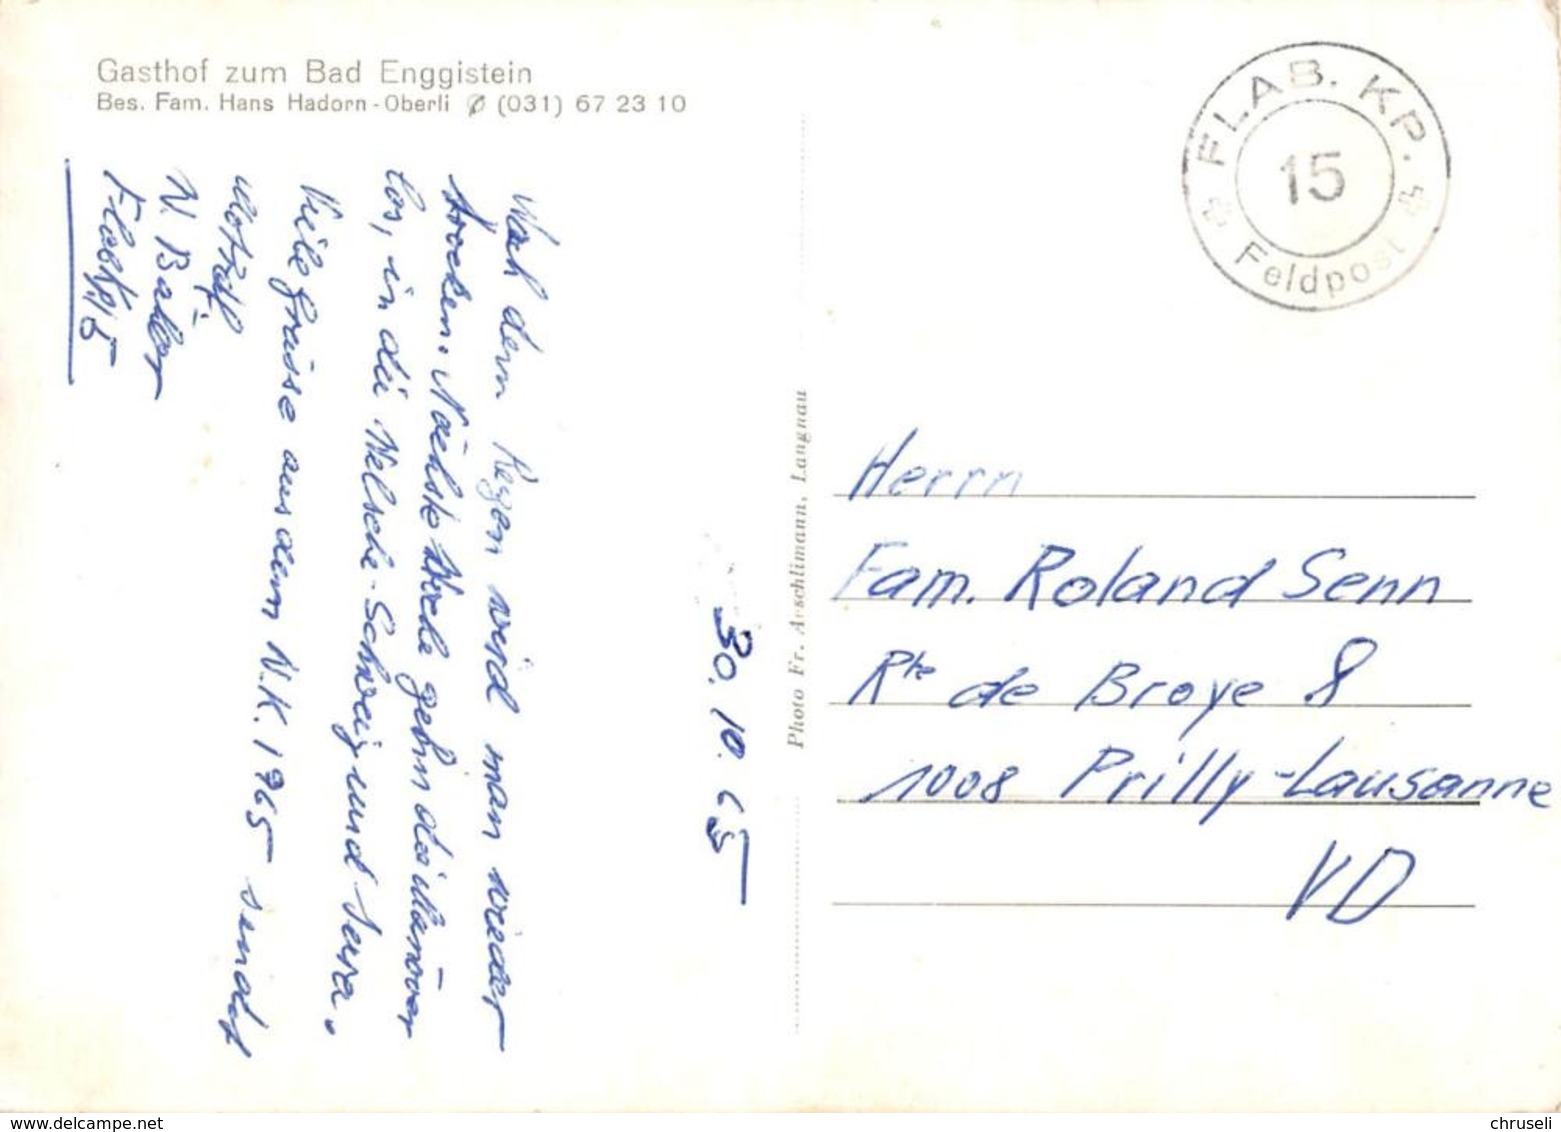 Gasthof zum Bad Enggistein
Bes. Fam. Hans Hadorn-Oberli ✆ (031) 67 23 10
FLAB. KP.
15
Feldpost
30. 10. 65
Nach dem Regen wird man wieder
trocken. Nächste Woche gehn die Manöver
los, in die Welsche-Schweiz und Jura.
Viele Grüsse aus dem W.K. 1965 sendet
Motrdf
W. Bader
Flab Kp 15
Photo Fr. Aeschlimann, Langnau
Herrn
Fam. Roland Senn
Rte de Broye 8
1008 Prilly-Lausanne
VD
chruseli